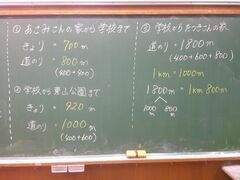 ① あさみさんの家から学校まで
きょり = 700m
道のり = 800m
(400+400)
② 学校から東山公園まで
きょり = 920m
道のり = 1000m
(400+600)
③ 学校からたつきさんの家
道のり = 1800m
(400+600+800)
1km = 1000m
1800m = 1km 800m
1000m 800m